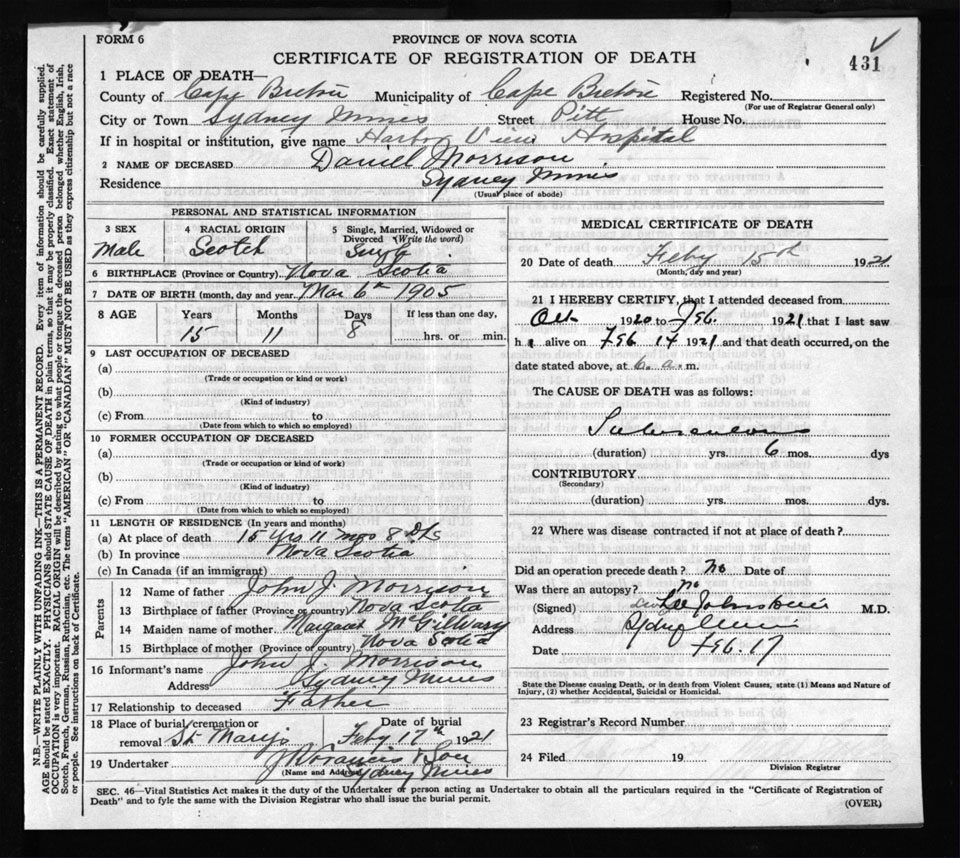 FORM 6
PROVINCE OF NOVA SCOTIA
CERTIFICATE OF REGISTRATION OF DEATH
431
1 PLACE OF DEATH—
County of Cape Breton Municipality of Cape Breton Registered No.
(For use of Registrar General only)
City or Town Sydney Mines Street Pitt House No.
If in hospital or institution, give name Harbor View Hospital
2 NAME OF DECEASED Daniel Morrison
Residence Sydney Mines
(Usual place of abode)
PERSONAL AND STATISTICAL INFORMATION
3 SEX Male
4 RACIAL ORIGIN Scotch
5 Single, Married, Widowed or Divorced (Write the word) Single
6 BIRTHPLACE (Province or Country) Nova Scotia
7 DATE OF BIRTH (month, day and year) Mar 6th 1905
8 AGE Years Months Days If less than one day,
15 11 8 hrs. or min.
9 LAST OCCUPATION OF DECEASED
(a)
(Trade or occupation or kind or work)
(b)
(Kind of industry)
(c) From to
(Date from which to which so employed)
10 FORMER OCCUPATION OF DECEASED
(a)
(Trade or occupation or kind of work)
(b)
(Kind of industry)
(c) From to
(Date from which to which so employed)
11 LENGTH OF RESIDENCE (In years and months)
(a) At place of death 15 yrs 11 mos 8
(b) In province Nova Scotia
(c) In Canada (if an immigrant)
Parents
12 Name of father John J. Morrison
13 Birthplace of father (Province or country) Nova Scotia
14 Maiden name of mother Margaret McGillvary
15 Birthplace of mother (Province or country) Nova Scotia
16 Informant's name John J. Morrison
Address Sydney Mines
17 Relationship to deceased Father
18 Place of burial, cremation or removal St Marys Date of burial Feby 17th 1921
19 Undertaker & Son
(Name and Address) Sydney Mines
MEDICAL CERTIFICATE OF DEATH
20 Date of death Feby 15th 1921
(Month, day and year)
21 I HEREBY CERTIFY, that I attended deceased from
Oct 1920 to Feb. 1921 that I last saw
h alive on Feb 14 1921 and that death occurred, on the
date stated above, at 6. a. m.
The CAUSE OF DEATH was as follows:
(duration) yrs. 6 mos. dys
CONTRIBUTORY
(Secondary)
(duration) yrs. mos. dys.
22 Where was disease contracted if not at place of death?
Did an operation precede death? No Date of
Was there an autopsy? No
(Signed) M.D.
Address Sydney Mines
Date Feb. 17
State the Disease causing Death, or in death from Violent Causes, state (1) Means and Nature of
Injury, (2) whether Accidental, Suicidal or Homicidal.
23 Registrar's Record Number
24 Filed 19
Division Registrar
SEC. 46—Vital Statistics Act makes it the duty of the Undertaker or person acting as Undertaker to obtain all the particulars required in the "Certificate of Registration of
Death" and to fyle the same with the Division Registrar who shall issue the burial permit.
(OVER)
N.B.—WRITE PLAINLY WITH UNFADING INK—THIS IS A PERMANENT RECORD. Every item of information should be carefully supplied.
AGE should be stated EXACTLY. PHYSICIANS should STATE CAUSE OF DEATH in plain terms, so that it may be properly classified. Exact statement of
OCCUPATION is very important. RACIAL ORIGIN will be described by stating to what people or tongue the deceased person belonged whether English, Irish,
Scotch, French, German, Russian, Ruthenian, etc. The terms "AMERICAN" OR "CANADIAN" MUST NOT BE USED as they express citizenship but not a race
or people. See instructions on back of Certificate.